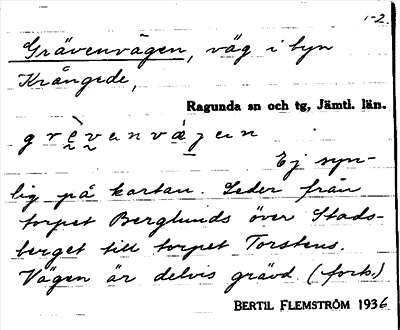 1-2.
Grävenvägen, väg i byn
Krångede,
Ragunda sn och tg, Jämtl. län.
Ej syn-
lig på kartan. Leder från
torpet Berglunds över Stads-
berget till torpet Torstens.
Vägen är delvis grävd (fork.)
BERTIL FLEMSTRÖM 1936